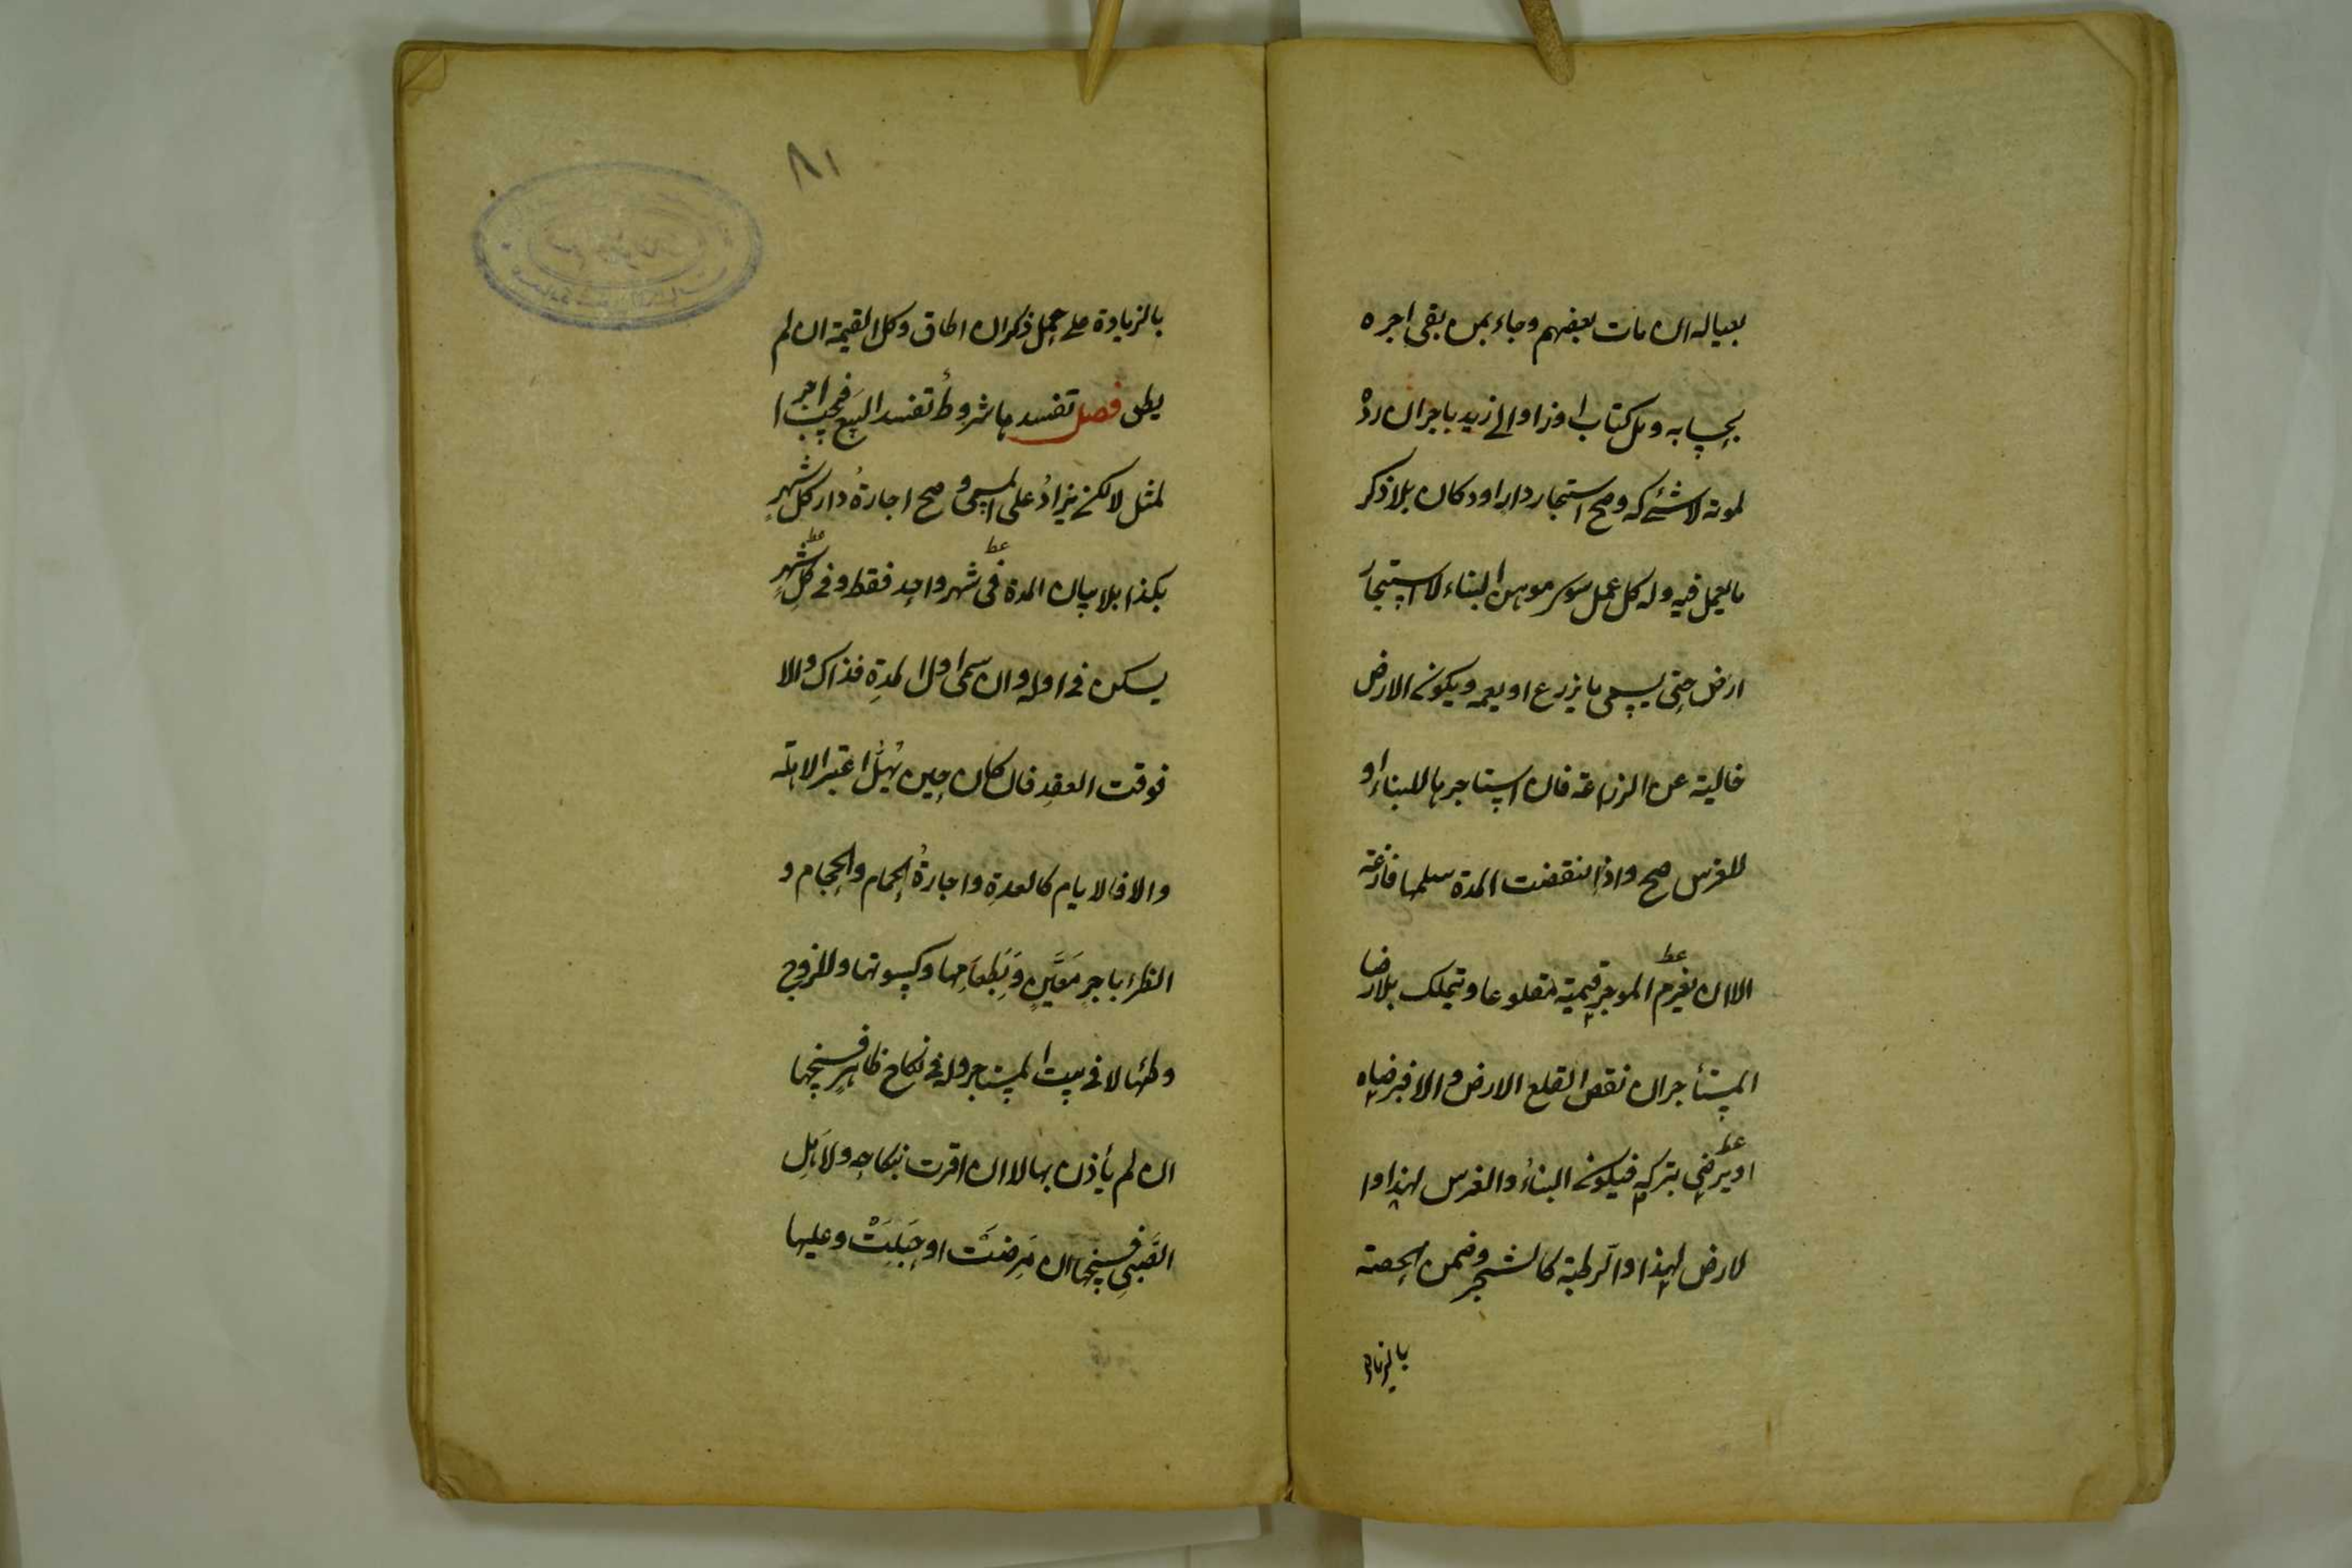 بعياله ان مات بعضهم وجاء بمن بقى اجره
بحسابه وحمل كتاب او زاد الى زيد باجر ان رده
لموته لا شئ له وصح استيجار دار او دكان بلا ذكر
ما يعمل فيه وله كل عمل سوى موهن البناء لا استيجار
ارض حتى يسمى ما يزرع او يعمه ويكون الارض
خالية عن الزراعة فان استاجرها للبناء او
للغرس صح واذا انقضت المدة سلمها فارغة
الا ان يغرم الموجر قيمته مقلوعا ويتملك بلا رضا
المستأجر ان نقص القلع الارض والا فبرضاه
او يرضى بتركه فيكون البناءُ والغرس لهذا وا
لارض لهذا والرطبة كالشجر وضمن الحصة
بالزيادة
٨١
بالزيادة على حمل ذكر ان اطاق وكل القيمة ان لم
يطق فصل تفسدها شروطُ تفسد البيع فيجب اجر ا
لمثل لا يزادُ على المسمى وصح اجارةُ دار كل شهرٍ
بكذا بلا بيان المدة فى شهر واحد فقط وفى كلِ شهرٍ
يسكن فى اوله وان سمى اول المدةِ فذاك والا
فوقت العقدِ فان كان حين يُهَلُّ اعتبر الاهلة
والا فالايام كالعدةِ واجارةُ الحمام والحجام و
الظئر باجرٍ مَعيَّنٍ وَبَطعامِها وكسوتها وللزوج
وطئها لا فى بيت المستاجر وله فى نكاح ظاهرٍ فسخها
ان لم يأذن بها لا ان اقرت بنكاحه ولاَهلِ
الصَّبىِ فسخها ان مَرِضَتْ او حَبِلَتْ وعليها